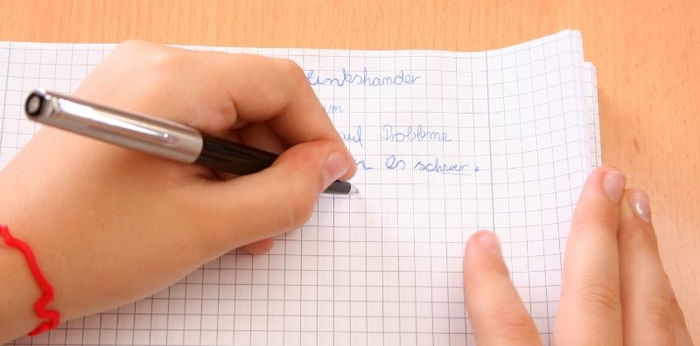 Linkshander
um
auf Probleme
es schwer.